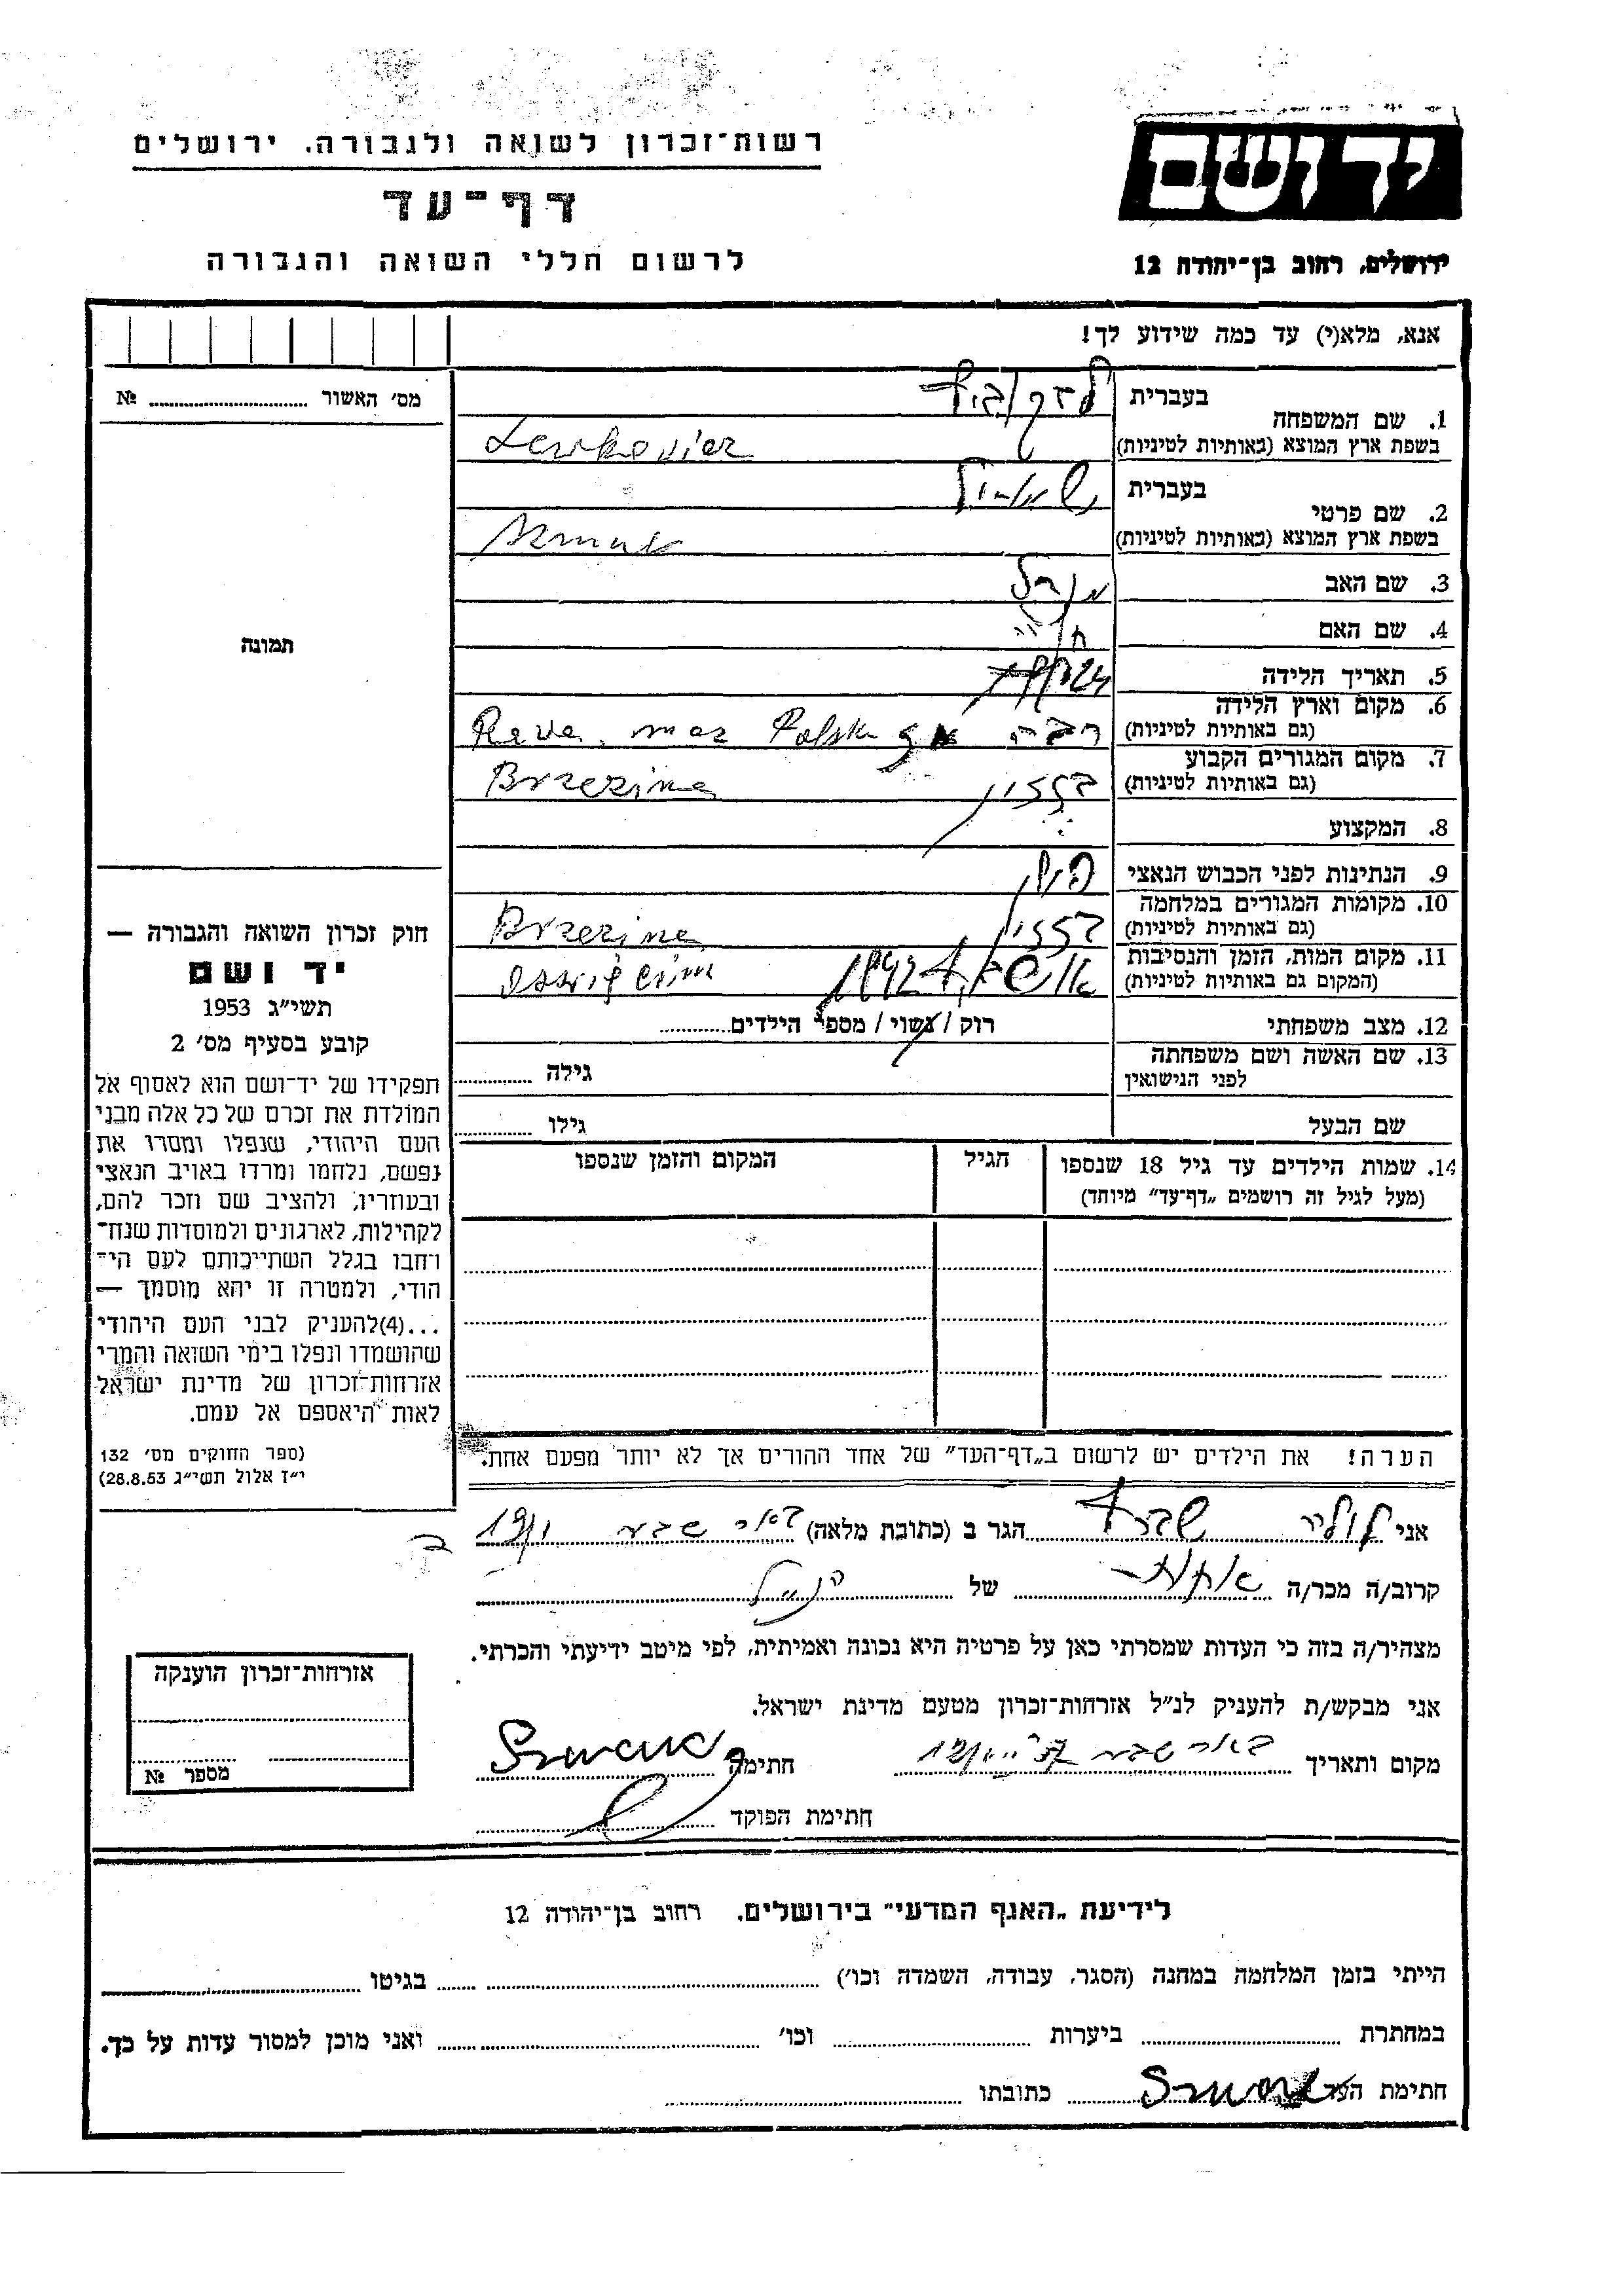 רשות־זכרון לשואה ולגבורה. ירושלים
דף־עד
לרשום חללי השואה והגבורה
יד ושם
ירושלים, רחוב בן־יהודה 12
אנא, מלא(י) עד כמה שידוע לך!
מס׳ האשור ... №
תמונה
1. שם המשפחה
בעברית
בשפת ארץ המוצא (באותיות לטיניות)
2. שם פרטי
בעברית
בשפת ארץ המוצא (באותיות לטיניות)
3. שם האב
4. שם האם
5. תאריך הלידה
6. מקום וארץ הלידה
(גם באותיות לטיניות) Polska
7. מקום המגורים הקבוע
(גם באותיות לטיניות) Brzezina
8. המקצוע
9. הנתינות לפני הכבוש הנאצי
10. מקומות המגורים במלחמה
(גם באותיות לטיניות) Brzezina
11. מקום המות, הזמן והנסיבות
(המקום גם באותיות לטיניות) 1942
12. מצב משפחתי רוק / נשוי / מספר הילדים
13. שם האשה ושם משפחתה
לפני הנישואין גילה
שם הבעל גילו
14. שמות הילדים עד גיל 18 שנספו
(מעל לגיל זה רושמים „דף־עד” מיוחד)
הגיל
המקום והזמן שנספו
חוק זכרון השואה והגבורה —
יד ושם
תשי״ג 1953
קובע בסעיף מס׳ 2
תפקידו של יד־ושם הוא לאסוף אל
המולדת את זכרם של כל אלה מבני
העם היהודי, שנפלו ומסרו את
נפשם, נלחמו ומרדו באויב הנאצי
ובעוזריו, ולהציב שם וזכר להם,
לקהילות, לארגונים ולמוסדות שנח־
רחבו בגלל השתייכותם לעם הי־
הודי, ולמטרה זו יהא מוסמך —
...(4)להעניק לבני העם היהודי
שהושמדו ונפלו בימי השואה והמרי
אזרחות־זכרון של מדינת ישראל
לאות היאספם אל עמם.
(ספר החוקים מס׳ 132
י״ז אלול תשי״ג 28.8.53)
הערה! את הילדים יש לרשום ב„דף־העד” של אחד ההורים אך לא יותר מפעם אחת.
אני הגר ב (כתובת מלאה) באר שבע
קרוב/ה מכר/ה של
מצהיר/ה בזה כי העדות שמסרתי כאן על פרטיה היא נכונה ואמיתית, לפי מיטב ידיעתי והכרתי.
אני מבקש/ת להעניק לנ״ל אזרחות־זכרון מטעם מדינת ישראל.
מקום ותאריך באר שבע חתימה
חתימת הפוקד
אזרחות־זכרון הוענקה
מספר №
לידיעת „האגף המדעי” בירושלים. רחוב בן־יהודה 12
הייתי בזמן המלחמה במחנה (הסגר, עבודה, השמדה וכו׳) בגיטו
במחתרת ביערות וכו׳ ואני מוכן למסור עדות על כך.
חתימת העד כתובתו